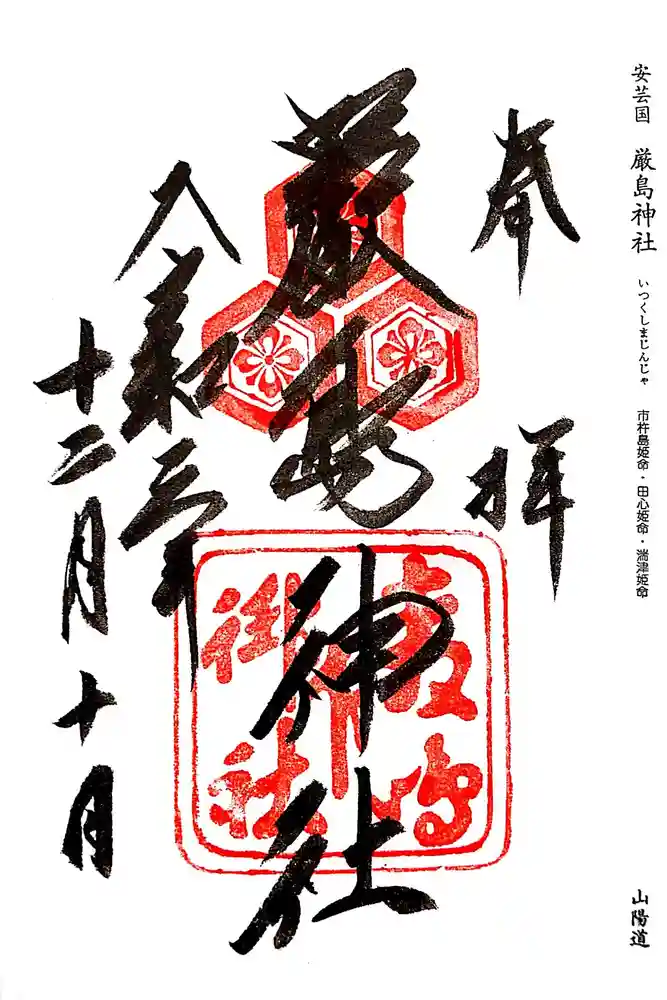 安芸国 厳島神社 いつくしまじんじゃ 市杵島姫命・田心姫命・湍津姫命
山陽道
奉拝
厳島神社
令和三年
十二月十日